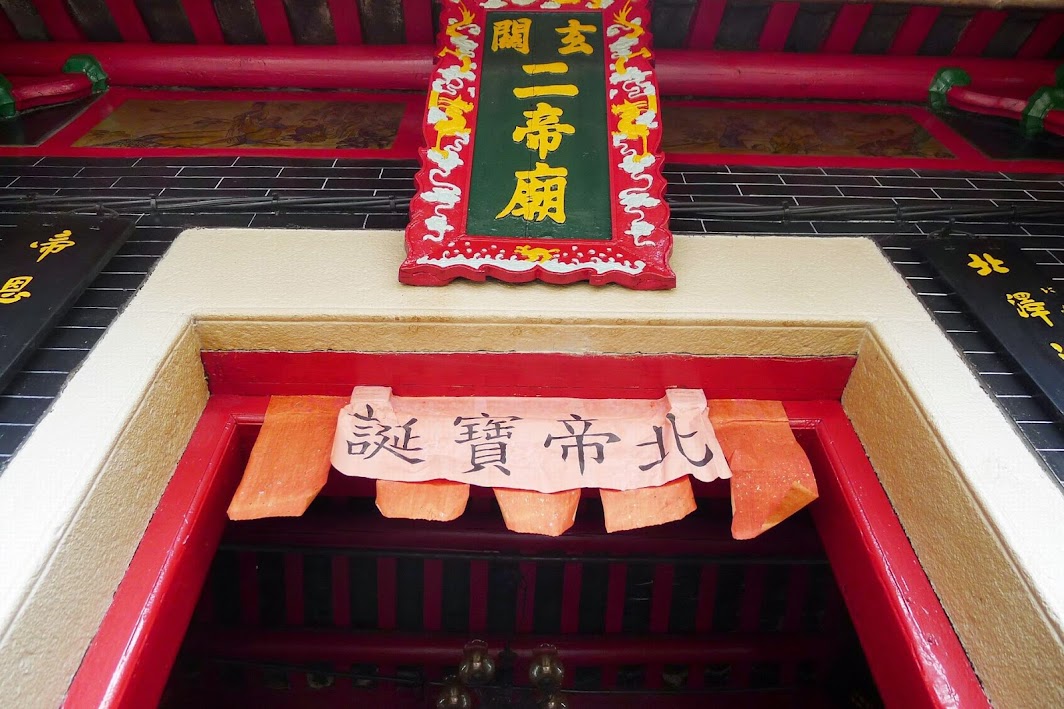 玄關
二帝廟
北帝寶誕
北
帝恩